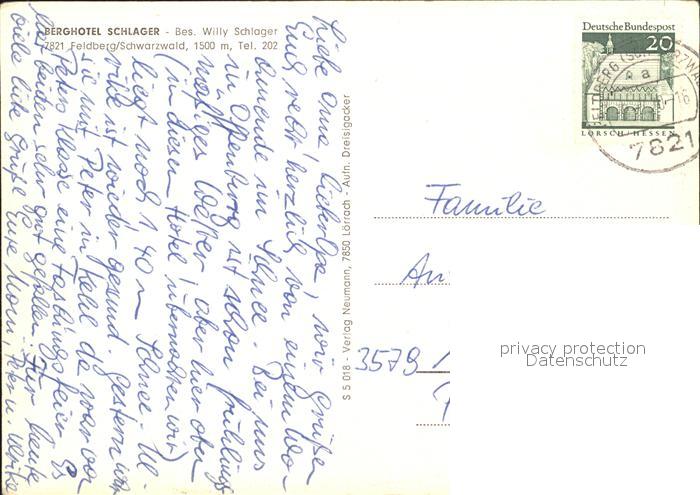 BERGHOTEL SCHLAGER - Bes. Willy Schlager
7821 Feldberg/Schwarzwald, 1500 m, Tel. 202
Liebe Oma, lieber Opa, wir grüßen
Euch recht herzlich von einem Wo-
chenende im Schnee. Bei uns
in Offenburg ist schon frühlings
mäßiges Wetter, aber hier oben
(in diesem Hotel übernachten wir)
liegt noch 1,40 m Schnee. Ul-
rike ist wieder gesund. Gestern war
sie mit Peter in Kehl, da war von
Peters Klasse eine Faschingsfeier. Es
hat beiden sehr gut gefallen. Für heute
viele liebe Grüße Eure Moni, Peter u. Ulrike
S 5 018 - Verlag Neumann, 7850 Lörrach - Aufn. Dreisigacker
Deutsche Bundespost
20
LORSCH/HESSEN
FELDBERG (SCHWARZWALD)
a
7821
Familie
An
3579
privacy protection
Datenschutz